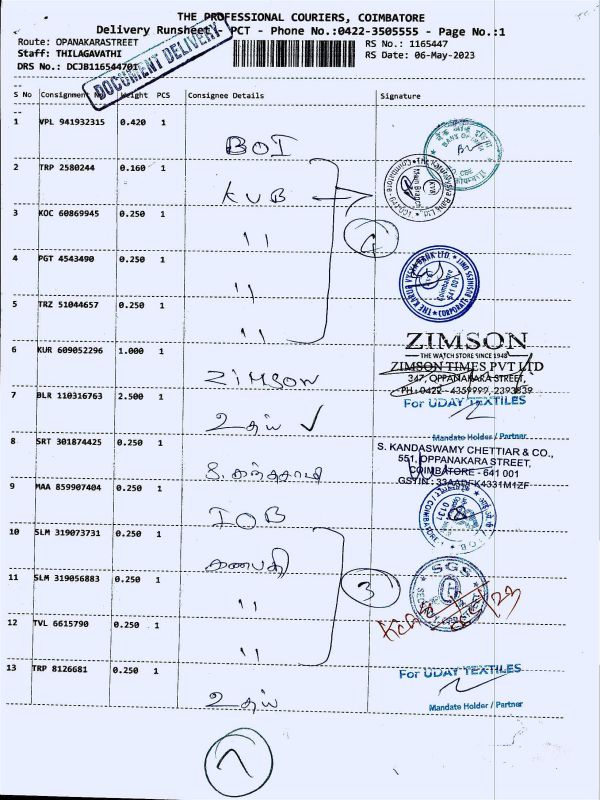 THE PROFESSIONAL COURIERS, COIMBATORE
Delivery Runsheet PCT - Phone No.:0422-3505555 - Page No.:1
Route: OPANAKARASTREET
RS No.: 1165447
Staff: THILAGAVATHI
RS Date: 06-May-2023
DRS No.: DCJB116544701
DOCUMENT DELIVERY
S No Consignment Weight PCS Consignee Details Signature
1 VPL 941932315 0.420 1
BOI
BANK OF INDIA
2 TRP 2580244 0.160 1
KVB
3 KOC 60869945 0.250 1
11
4
4 PGT 4543490 0.250 1
11
Coimbatore
641 001
5 TRZ 51044657 0.250 1
11
ZIMSON
THE WATCH STORE SINCE 1948
6 KUR 609052296 1.000 1
ZIMSON
ZIMSON TIMES PVT LTD
347, OPPANAKARA STREET,
PH: 0422 - 4359999, 2393839
7 BLR 110316763 2.500 1
உதய் ✓
For UDAY TEXTILES
Mandate Holder / Partner
8 SRT 301874425 0.250 1
S. கந்தசாமி
S. KANDASWAMY CHETTIAR & CO.,
551, OPPANAKARA STREET,
COIMBATORE - 641 001
GSTIN : 33AADFK4331M1ZF
9 MAA 859907404 0.250 1
IOB
0131
10 SLM 319073731 0.250 1
கணபதி
11 SLM 319056883 0.250 1
11
3
SGS
12 TVL 6615790 0.250 1
11
13 TRP 8126681 0.250 1
உதய்
For UDAY TEXTILES
Mandate Holder / Partner
7